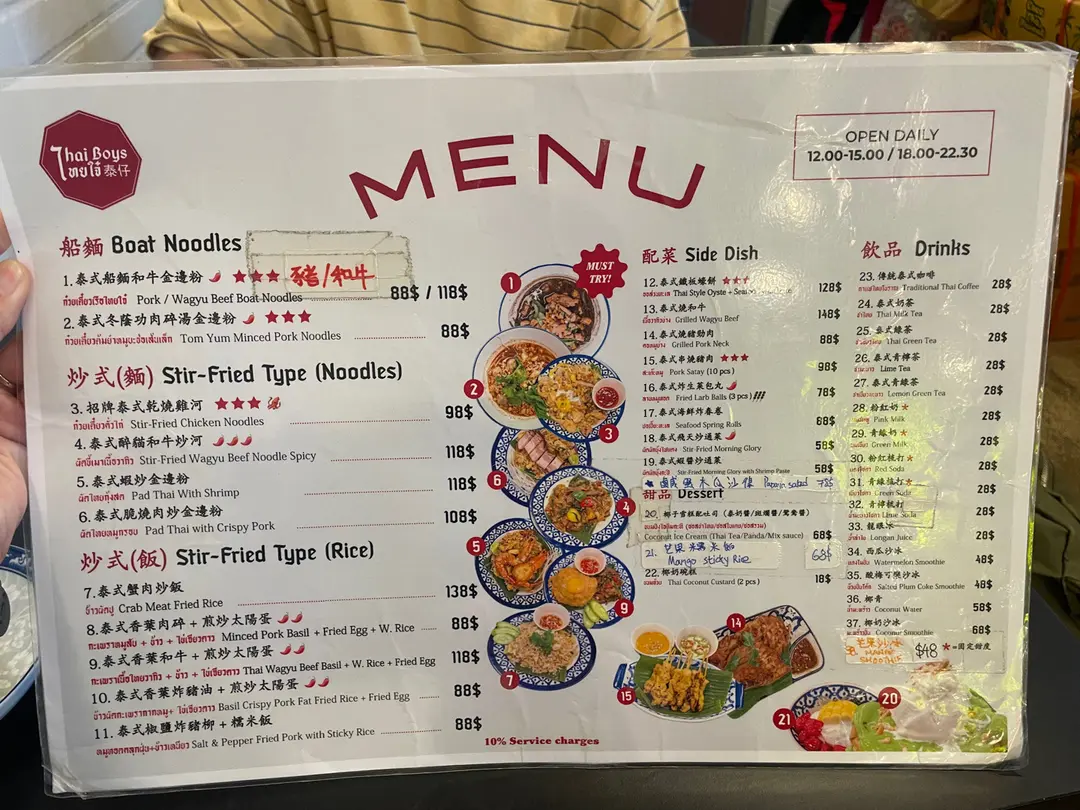 Thai Boys
ไทยใจ๋ 泰仔
MENU
OPEN DAILY
12.00-15.00 / 18.00-22.30
船麵 Boat Noodles
1.泰式船麵和牛金邊粉 豬/和牛
Pork / Wagyu Beef Boat Noodles 88$ / 118$
2.泰式冬蔭功肉碎湯金邊粉
Tom Yum Minced Pork Noodles 88$
炒式(麵) Stir-Fried Type (Noodles)
3.招牌泰式乾燒雞河
ก๋วยเตี๋ยวคั่วไก่ Stir-Fried Chicken Noodles 98$
4.泰式醉貓和牛炒河
Stir-Fried Wagyu Beef Noodle Spicy 118$
5.泰式蝦炒金邊粉
ผัดไทยกุ้งสด Pad Thai With Shrimp 118$
6.泰式脆燒肉炒金邊粉
ผัดไทยหมูกรอบ Pad Thai with Crispy Pork 108$
炒式(飯) Stir-Fried Type (Rice)
7.泰式蟹肉炒飯
ข้าวผัดปู Crab Meat Fried Rice 138$
8.泰式香葉肉碎 + 煎炒太陽蛋
กะเพราหมูสับ + ข้าว + ไข่เจียวดาว Minced Pork Basil + Fried Egg + W. Rice 88$
9.泰式香葉和牛 + 煎炒太陽蛋
กะเพราเนื้อไทยวากิว + ข้าว + ไข่เจียวดาว Thai Wagyu Beef Basil + W. Rice + Fried Egg 118$
10. 泰式香葉炸豬油 + 煎炒太陽蛋
Basil Crispy Pork Fat Fried Rice + Fried Egg 88$
11. 泰式椒鹽炸豬柳 + 糯米飯
Salt & Pepper Fried Pork with Sticky Rice 88$
MUST TRY!
1
2
3
6
4
5
9
7
10% Service charges
配菜 Side Dish
12.泰式鐵板蠔餅
Thai Style Oyster + 128$
13.泰式燒和牛
Grilled Wagyu Beef 148$
14.泰式燒豬勁肉
คอหมูย่าง Grilled Pork Neck 88$
15.泰式串燒豬肉
สะเต๊ะหมู Pork Satay (10 pcs) 98$
16.泰式炸生菜包丸
ลาบหมูทอด Fried Larb Balls (3 pcs) 78$
17.泰式海鮮炸春卷
Seafood Spring Rolls 68$
18.泰式飛天炒通菜
Stir-Fried Morning Glory 58$
19.泰式蝦醬炒通菜
Stir-Fried Morning Glory with Shrimp Paste 58$
木瓜沙律 Papaya salad 78$
甜品 Dessert
20. 椰子雪糕配吐司 (泰奶醬/斑斕醬/鴛鴦醬)
Coconut Ice Cream (Thai Tea/Panda/Mix sauce) 68$
21. 芒果糯米飯 68$
Mango sticky Rice
22. 椰奶碗糕
Thai Coconut Custard (2 pcs) 18$
14
15
21
20
飲品 Drinks
23. 傳統泰式咖啡
Traditional Thai Coffee 28$
24. 泰式奶茶
ชาไทย Thai Milk Tea 28$
25. 泰式綠茶
Thai Green Tea 28$
26. 泰式青檸茶
ชามะนาว Lime Tea 28$
27. 泰式青綠茶
Lemon Green Tea 28$
28. 粉紅奶
นมชมพู Pink Milk 28$
29. 青綠奶
Green Milk 28$
30. 粉紅梳打
Red Soda 28$
31. 青綠梳打
Green Soda 28$
32. 青檸梳打
Lime Soda 28$
33. 龍眼冰
น้ำลำไย Longan Juice 28$
34. 西瓜沙冰
แตงโมปั่น Watermelon Smoothie 48$
35. 酸梅可樂沙冰
Salted Plum Coke Smoothie 48$
36. 椰青
น้ำมะพร้าว Coconut Water 58$
37. 椰奶沙冰
Coconut Smoothie 68$
芒果沙冰
MANGO
SMOOTHIE $48
=固定甜度